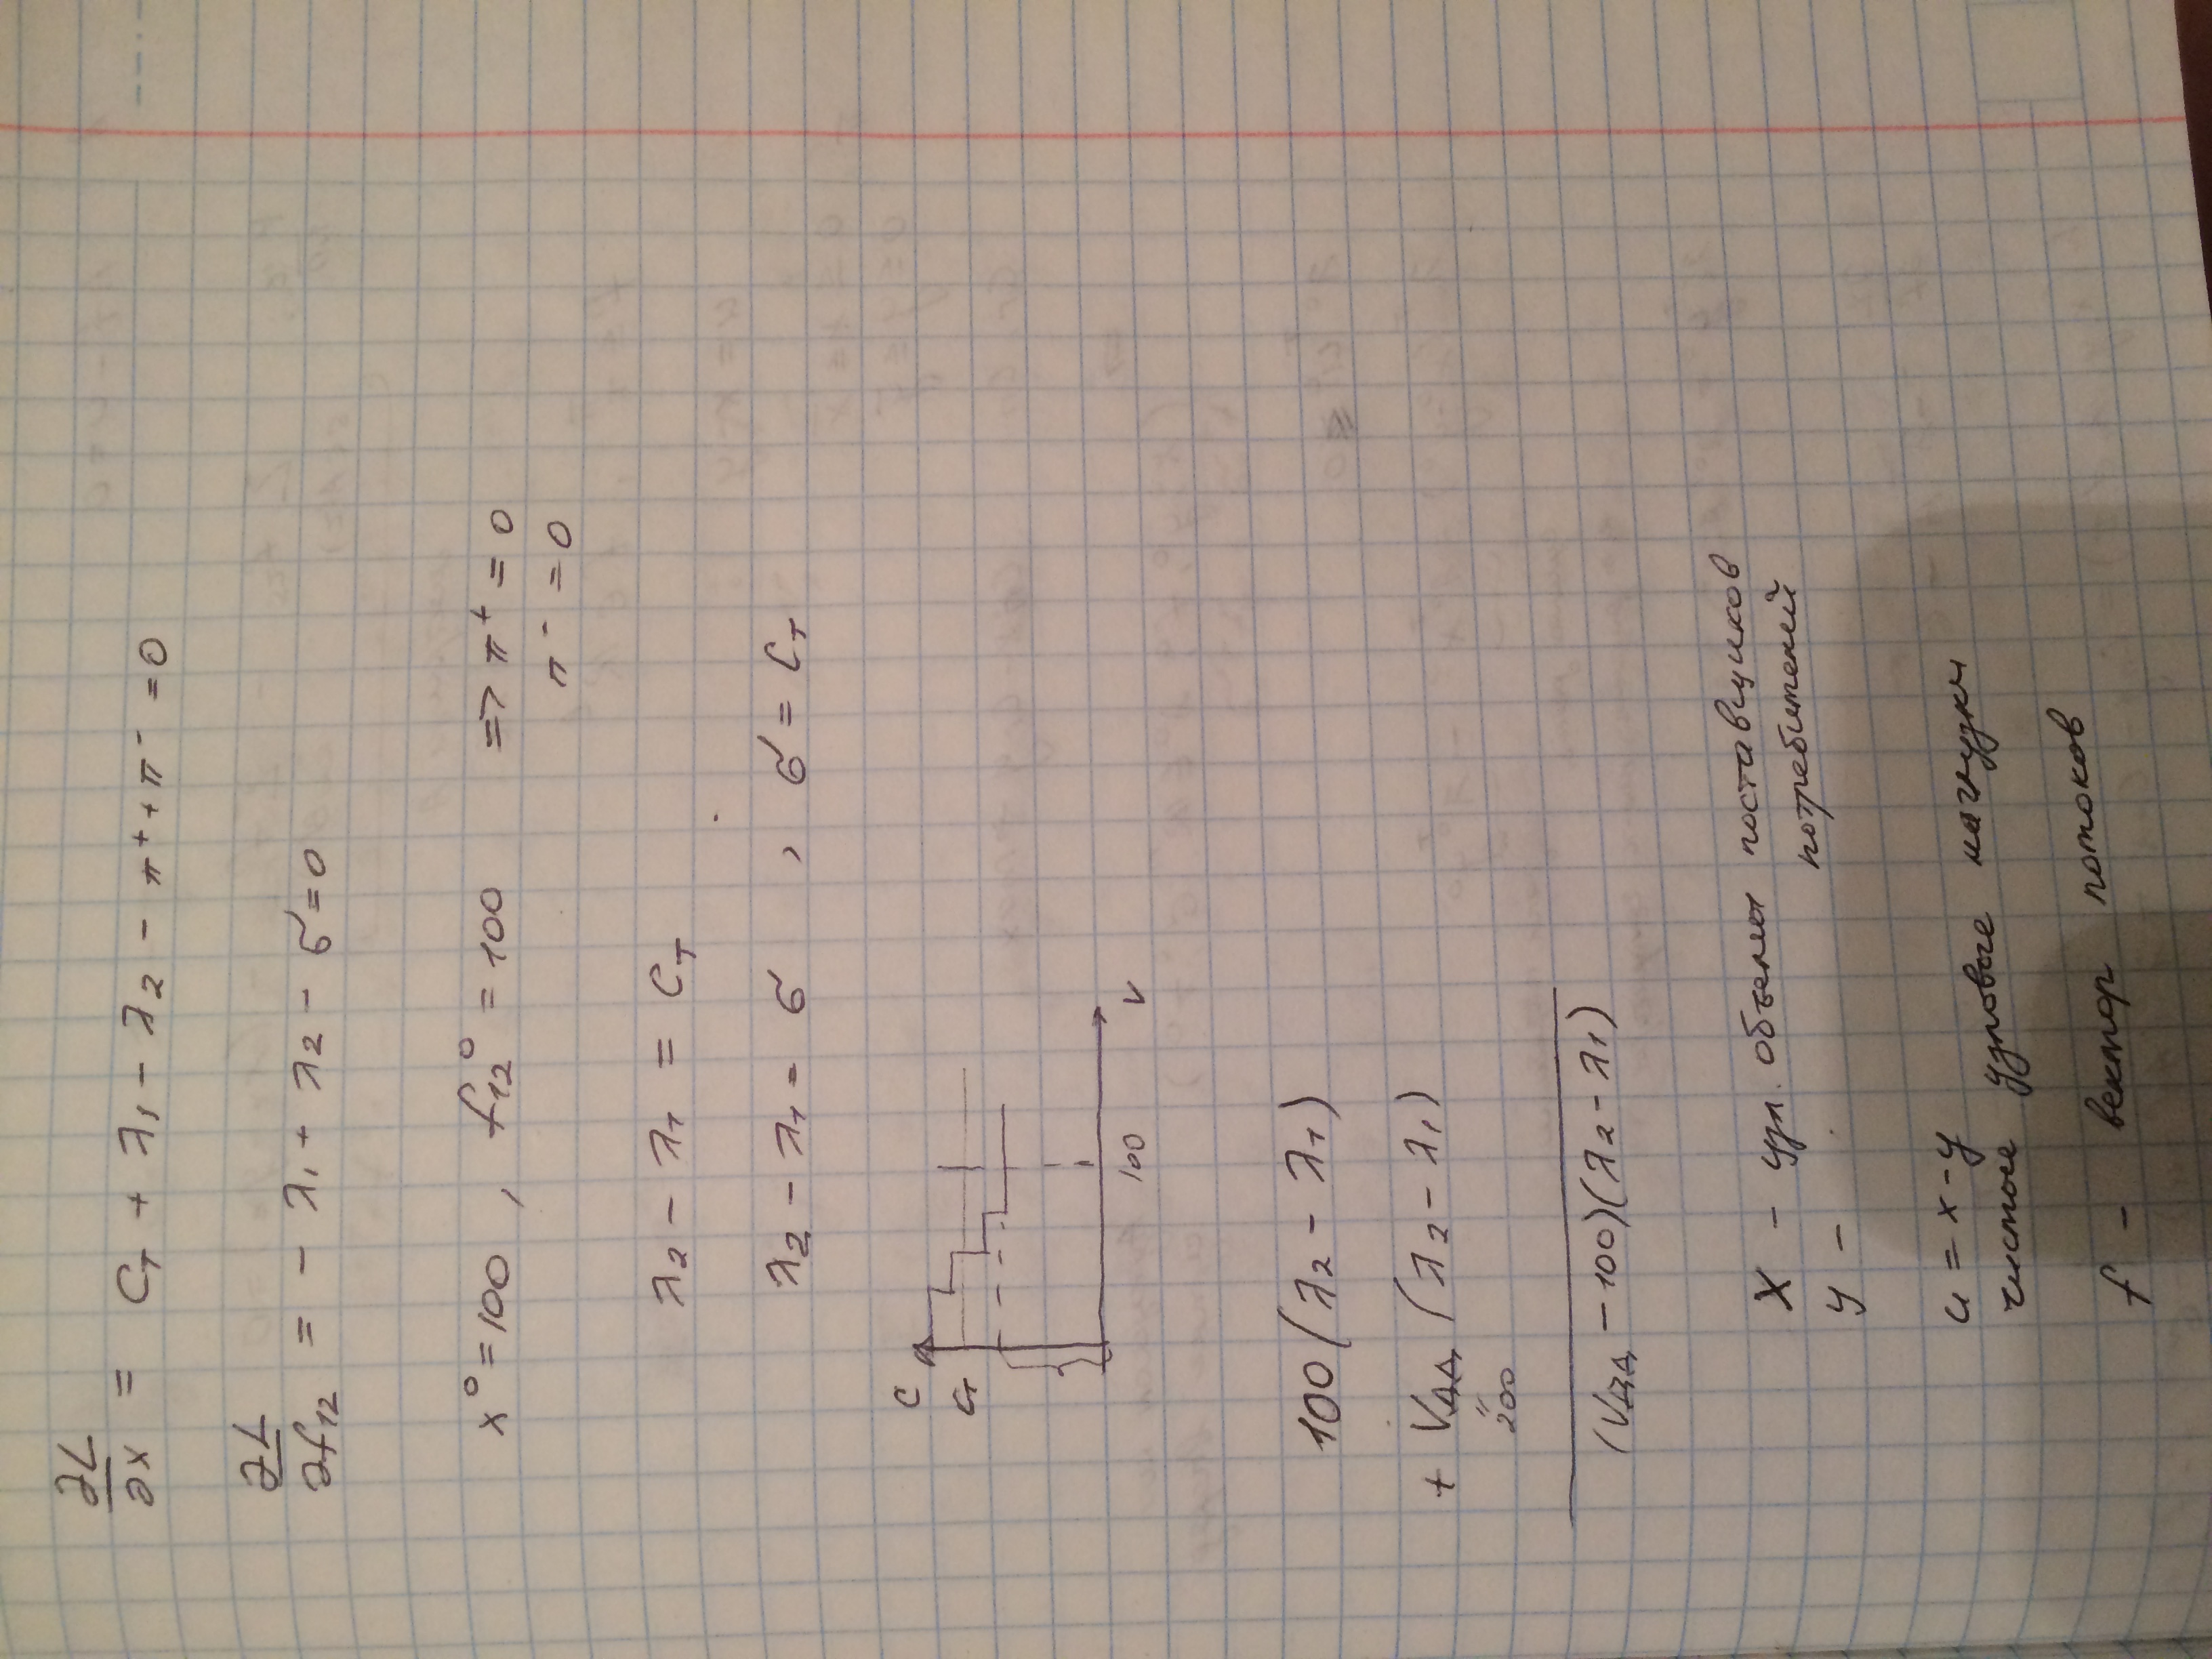 ∂L/∂x = C_T + λ₁ - λ₂ - π⁺ + π⁻ = 0
∂L/∂f₁₂ = - λ₁ + λ₂ - σ = 0
x⁰ = 100 , f₁₂⁰ = 100 => π⁺ = 0
π⁻ = 0
λ₂ - λ₁ = C_T
λ₂ - λ₁ = σ , σ = C_T
C
C_T
100
V
100 (λ₂ - λ₁)
+ V_ДД (λ₂ - λ₁)
"
200
(V_ДД - 100)(λ₂ - λ₁)
x - узл. объемы поставщиков
y - потребителей
u = x - y
чистые узловые нагрузки
f - вектор потоков